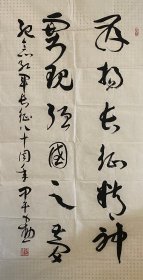 再扬长征精神
实现强国之梦
纪念红军长征八十周年